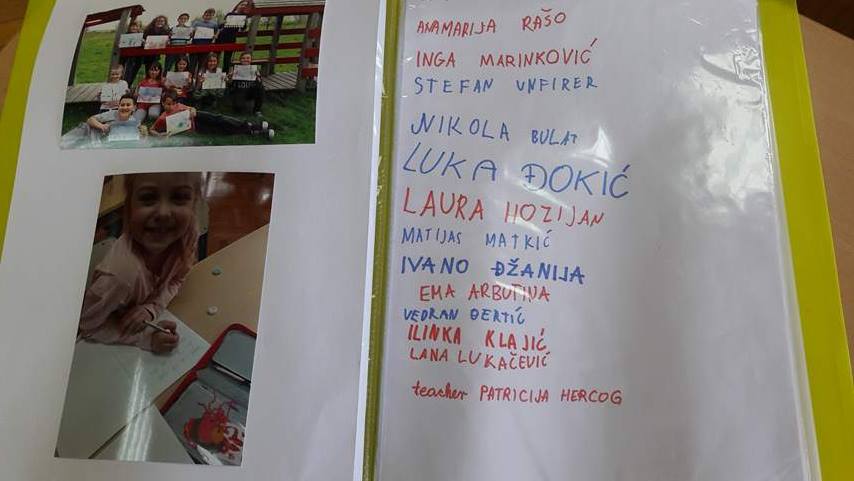 ANAMARIJA RAŠO
INGA MARINKOVIĆ
STEFAN UNFIRER
NIKOLA BULAT
LUKA ĐOKIĆ
LAURA HOZIJAN
MATIJAS MATKIĆ
IVANO ĐŽANIJA
EMA ARBUTINA
VEDRAN BERTIĆ
ILINKA KLAJIĆ
LANA LUKAČEVIĆ
teacher PATRICIJA HERCOG